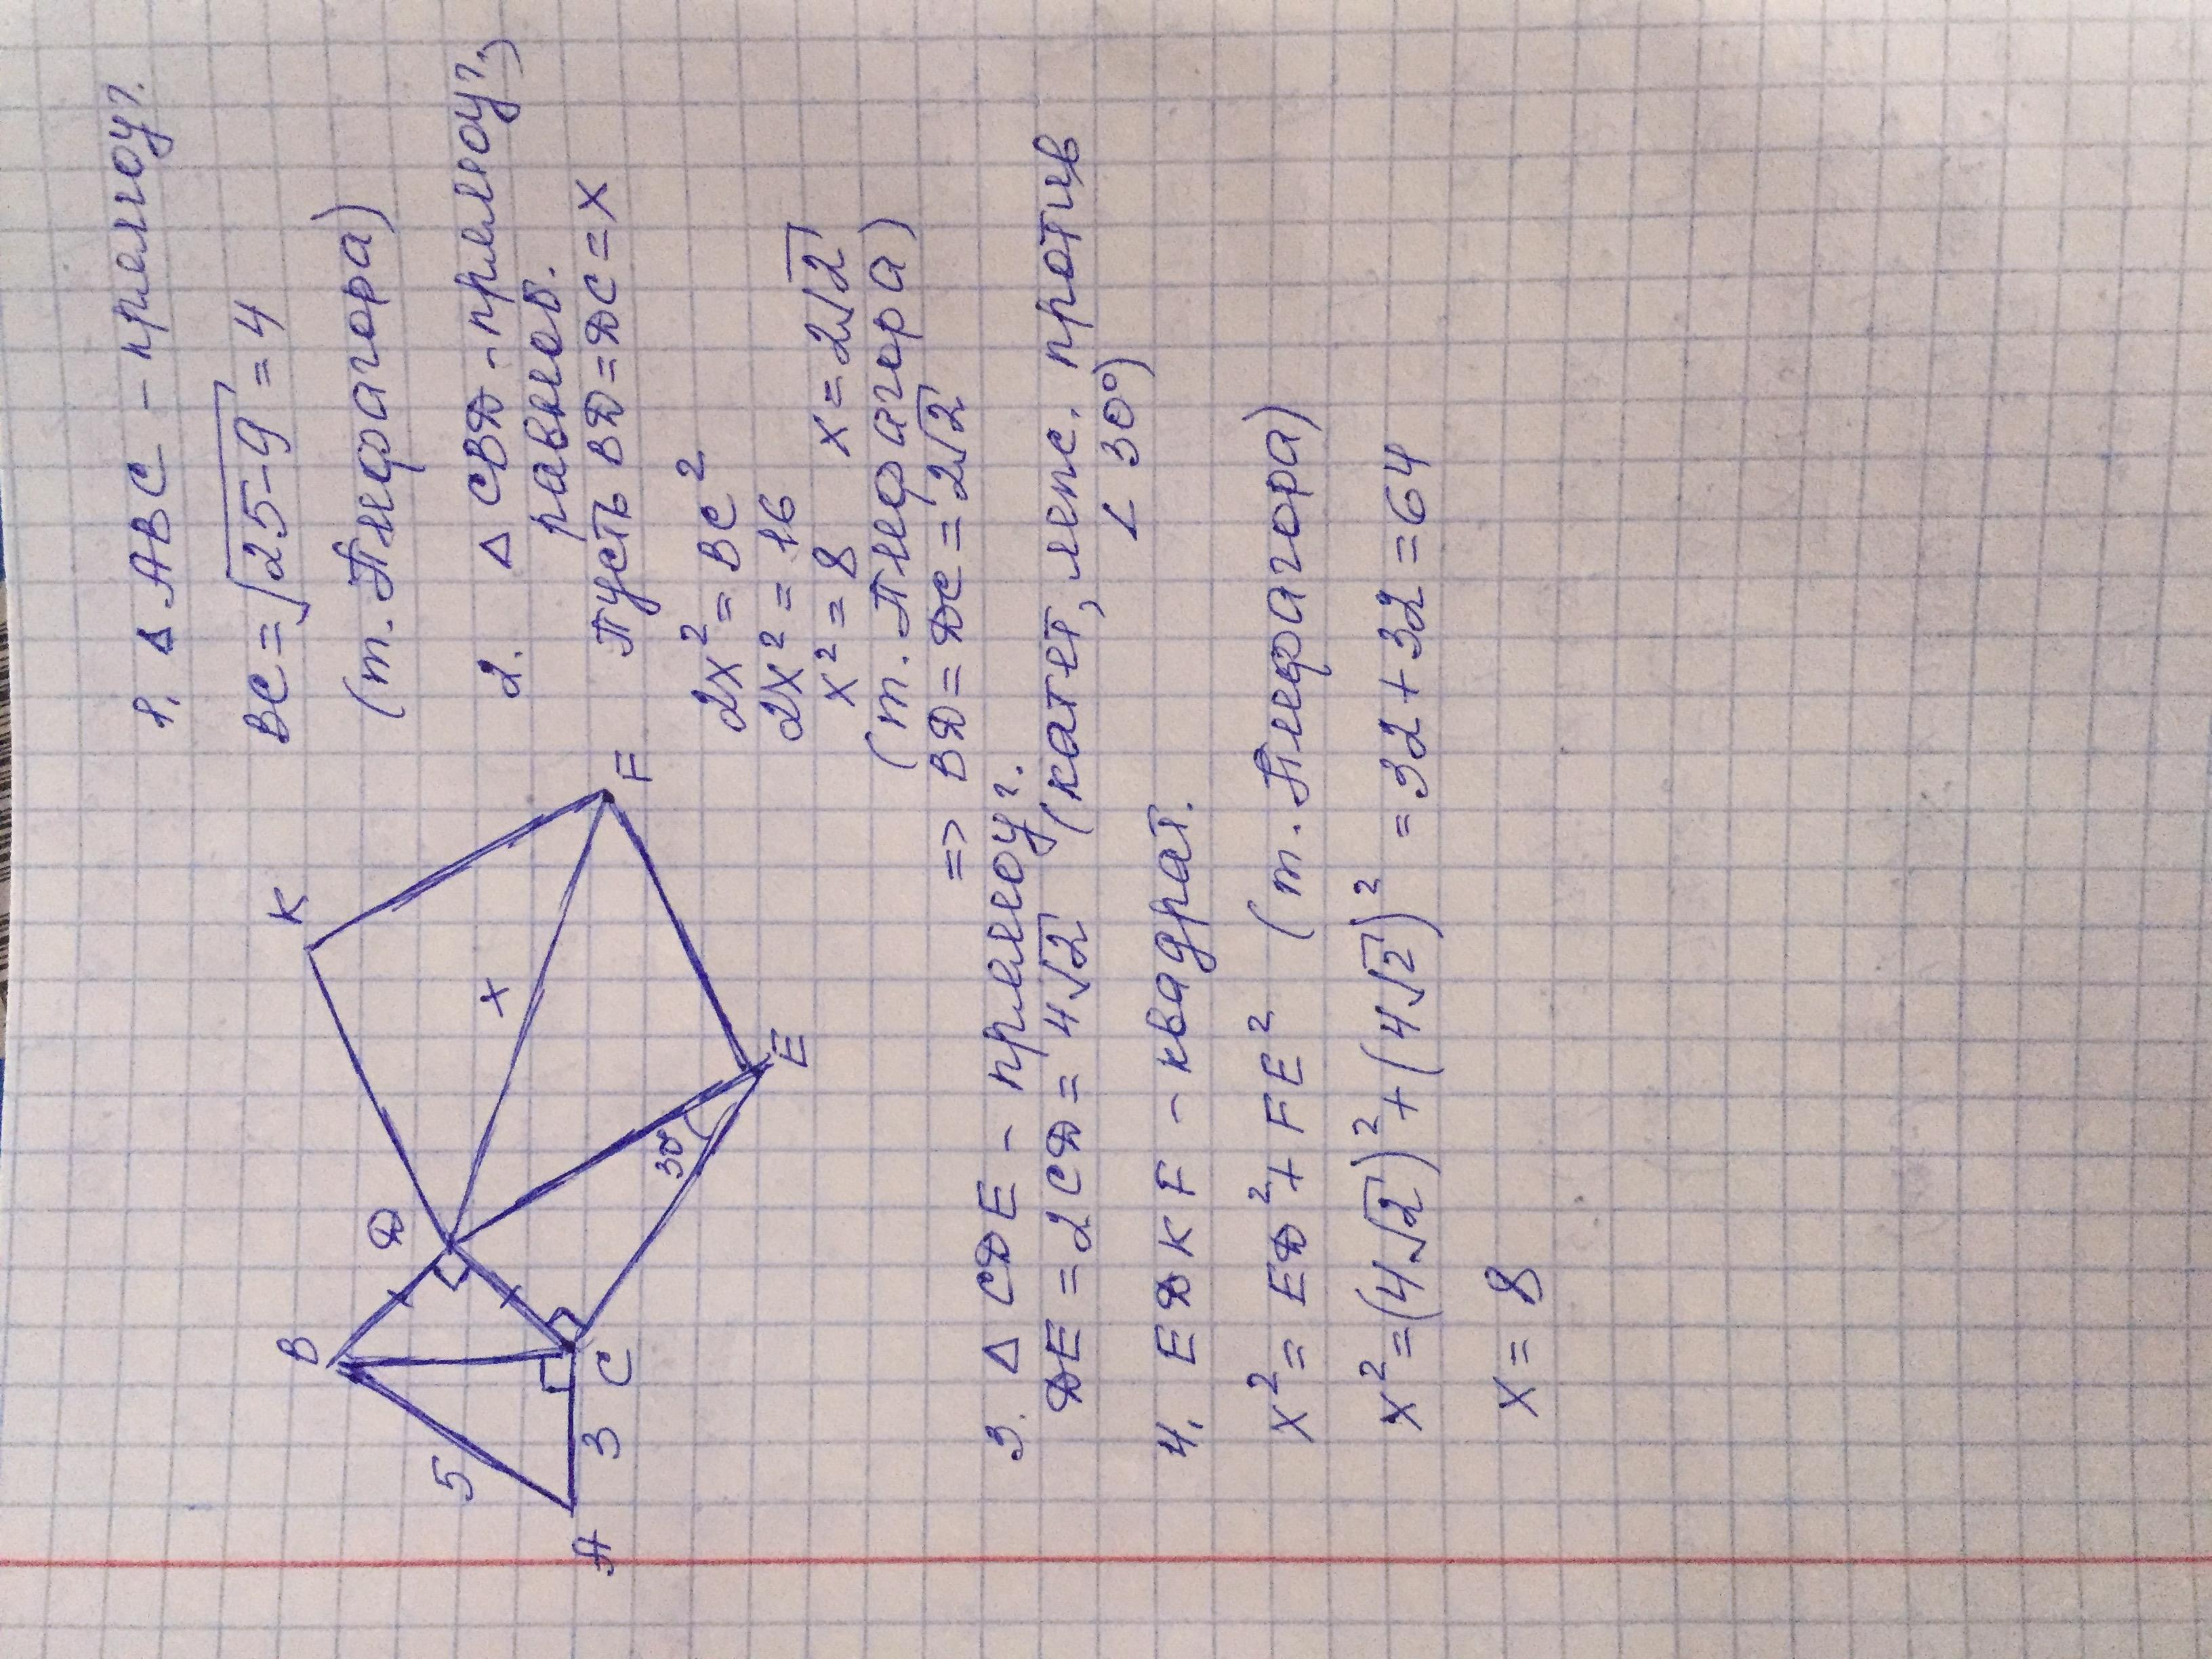 B
D
K
5
x
F
A
3
C
30°
E
1. Δ ABC – прямоуг.
BC = √25-9 = 4
(т. Пифагора)
2. Δ CBD – прямоуг.,
равноб.
Пусть BD = DC = x
2x² = BC²
2x² = 16
x² = 8 x = 2√2
(т. Пифагора)
=> BD = DC = 2√2
3. Δ CDE – прямоуг.
DE = 2CD = 4√2 (катет, леж. против
∠ 30°)
4. EDKF – квадрат.
x² = ED² + FE² (т. Пифагора)
x² = (4√2)² + (4√2)² = 32 + 32 = 64
x = 8